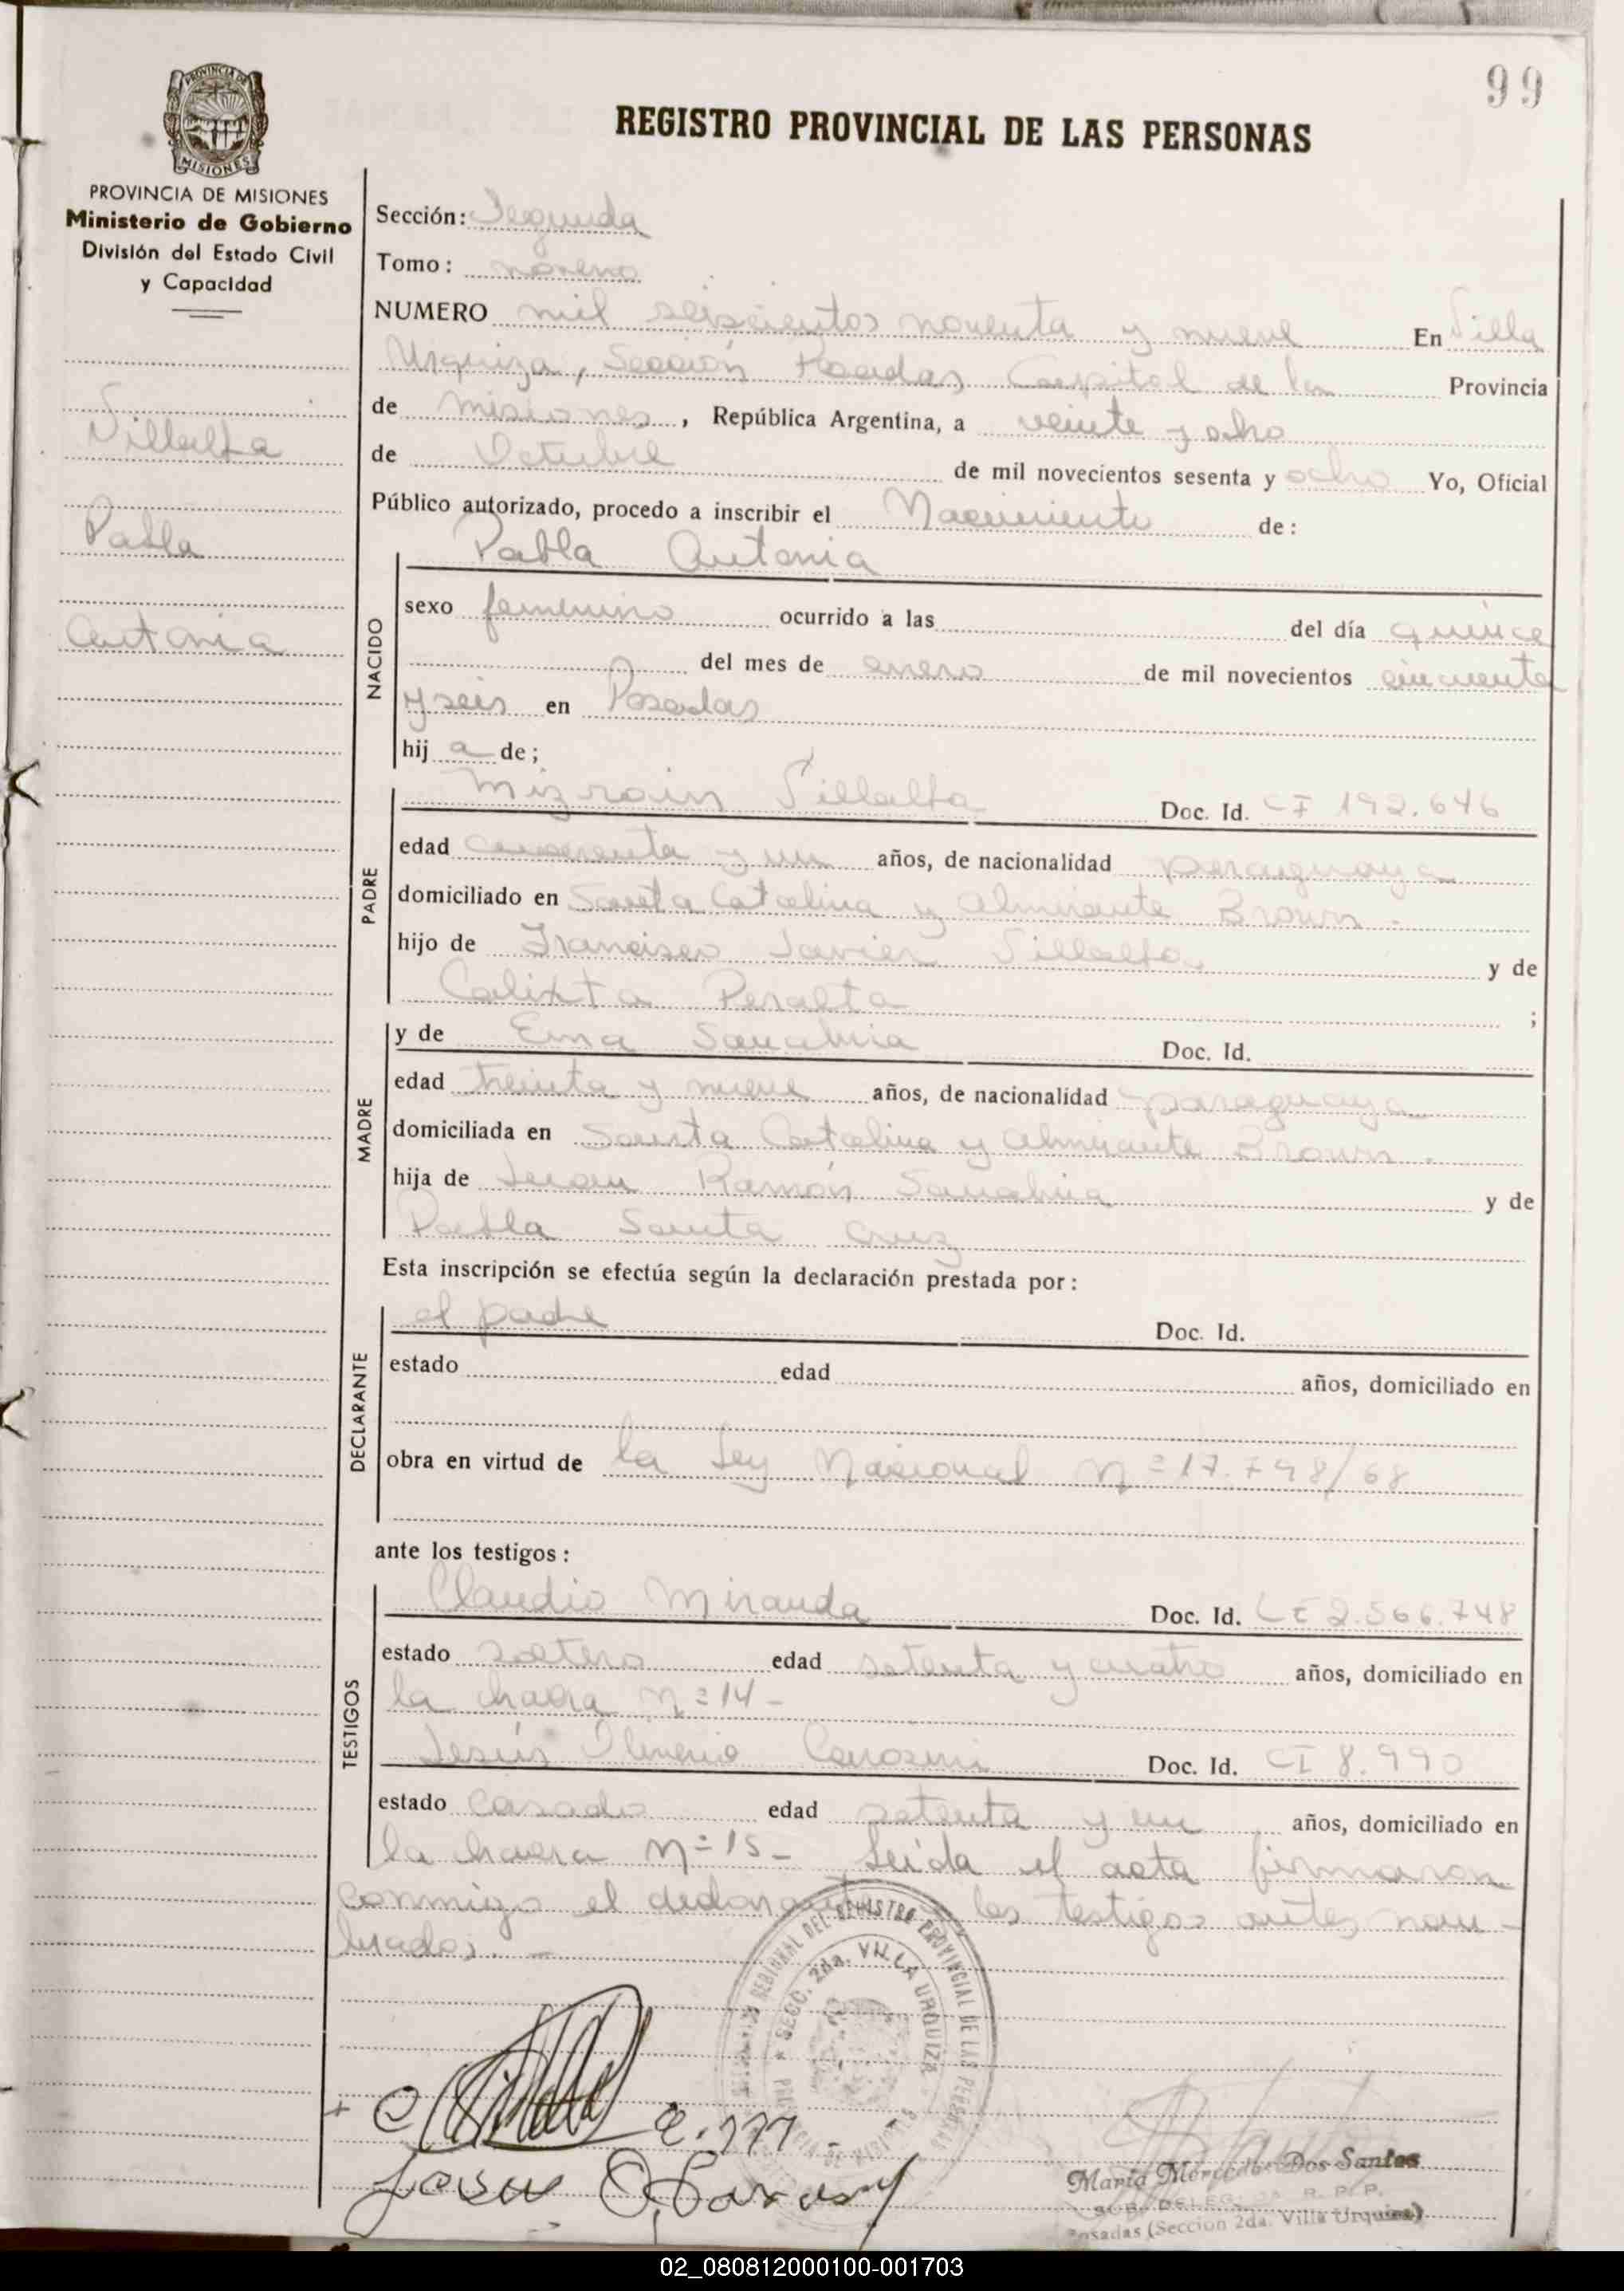 99
REGISTRO PROVINCIAL DE LAS PERSONAS
PROVINCIA DE
MISIONES
PROVINCIA DE MISIONES
Ministerio de Gobierno
División del Estado Civil
y Capacidad
Villalta
Pabla
Antonia
Sección: Segunda
Tomo: noveno
NUMERO mil seiscientos noventa y nueve En Villa
Urquiza, Sección Posadas Capital de la Provincia
de Misiones, República Argentina, a veinte y ocho
de Octubre de mil novecientos sesenta y ocho Yo, Oficial
Público autorizado, procedo a inscribir el Nacimiento de:
NACIDO
Pabla Antonia
sexo femenino ocurrido a las del día quince
del mes de enero de mil novecientos cincuenta
y seis en Posadas
hij a de;
PADRE
Mizrain Villalta Doc. Id. CI 192.646
edad cuarenta y un años, de nacionalidad paraguaya
domiciliado en Santa Catalina y Almirante Brown.
hijo de Francisco Javier Villalta y de
Calixta Peralta ;
MADRE
y de Ema Sanabria Doc. Id.
edad treinta y nueve años, de nacionalidad paraguaya
domiciliada en Santa Catalina y Almirante Brown.
hija de Juan Ramón Sanabria y de
Pabla Santa Cruz
Esta inscripción se efectúa según la declaración prestada por:
DECLARANTE
el padre Doc. Id.
estado edad años, domiciliado en
obra en virtud de la Ley Nacional Nº 17.798/68
ante los testigos:
TESTIGOS
Claudio Miranda Doc. Id. LE 2.566.748
estado soltero edad setenta y cuatro años, domiciliado en
la chacra Nº 14-
Jesús Doc. Id. CI 8.990
estado casado edad setenta y un años, domiciliado en
la chacra Nº 15- Leída el acta firmaron
conmigo el declarante los testigos antes nom-
brados.-
REGIONAL DEL REGISTRO PROVINCIAL DE LAS PERSONAS
SECC. 2da. VILLA URQUIZA
María Mercedes Dos Santos
SUB. DELEG. R. P. P.
Posadas (Sección 2da. Villa Urquiza)
02_080812000100-001703